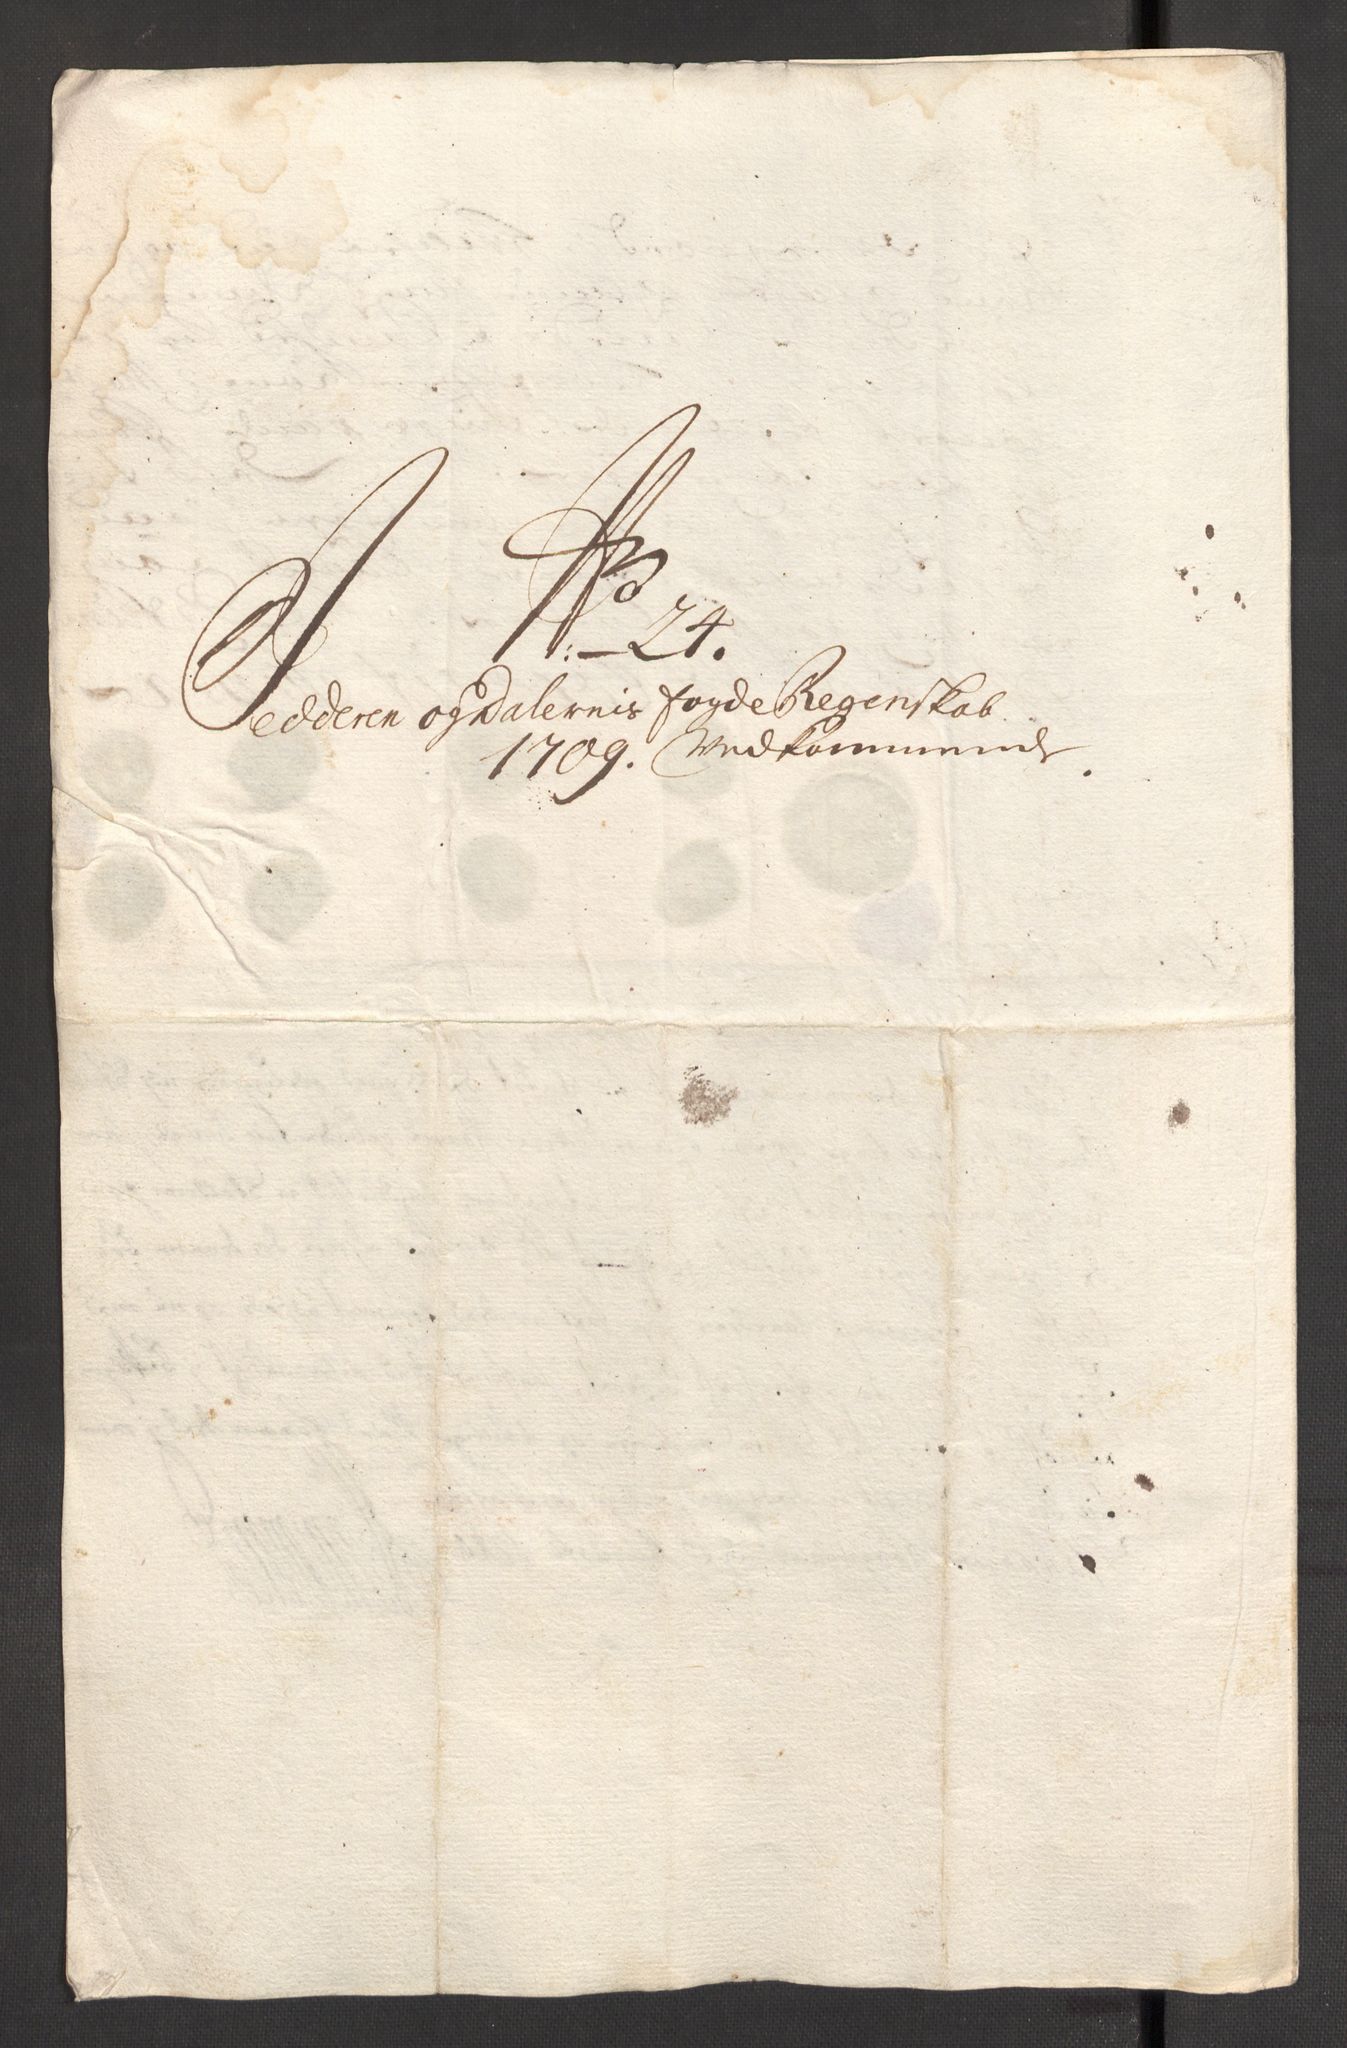 No
24.
Jedderen og Dalernis fogde Regenskab
1709. Vedkommende.